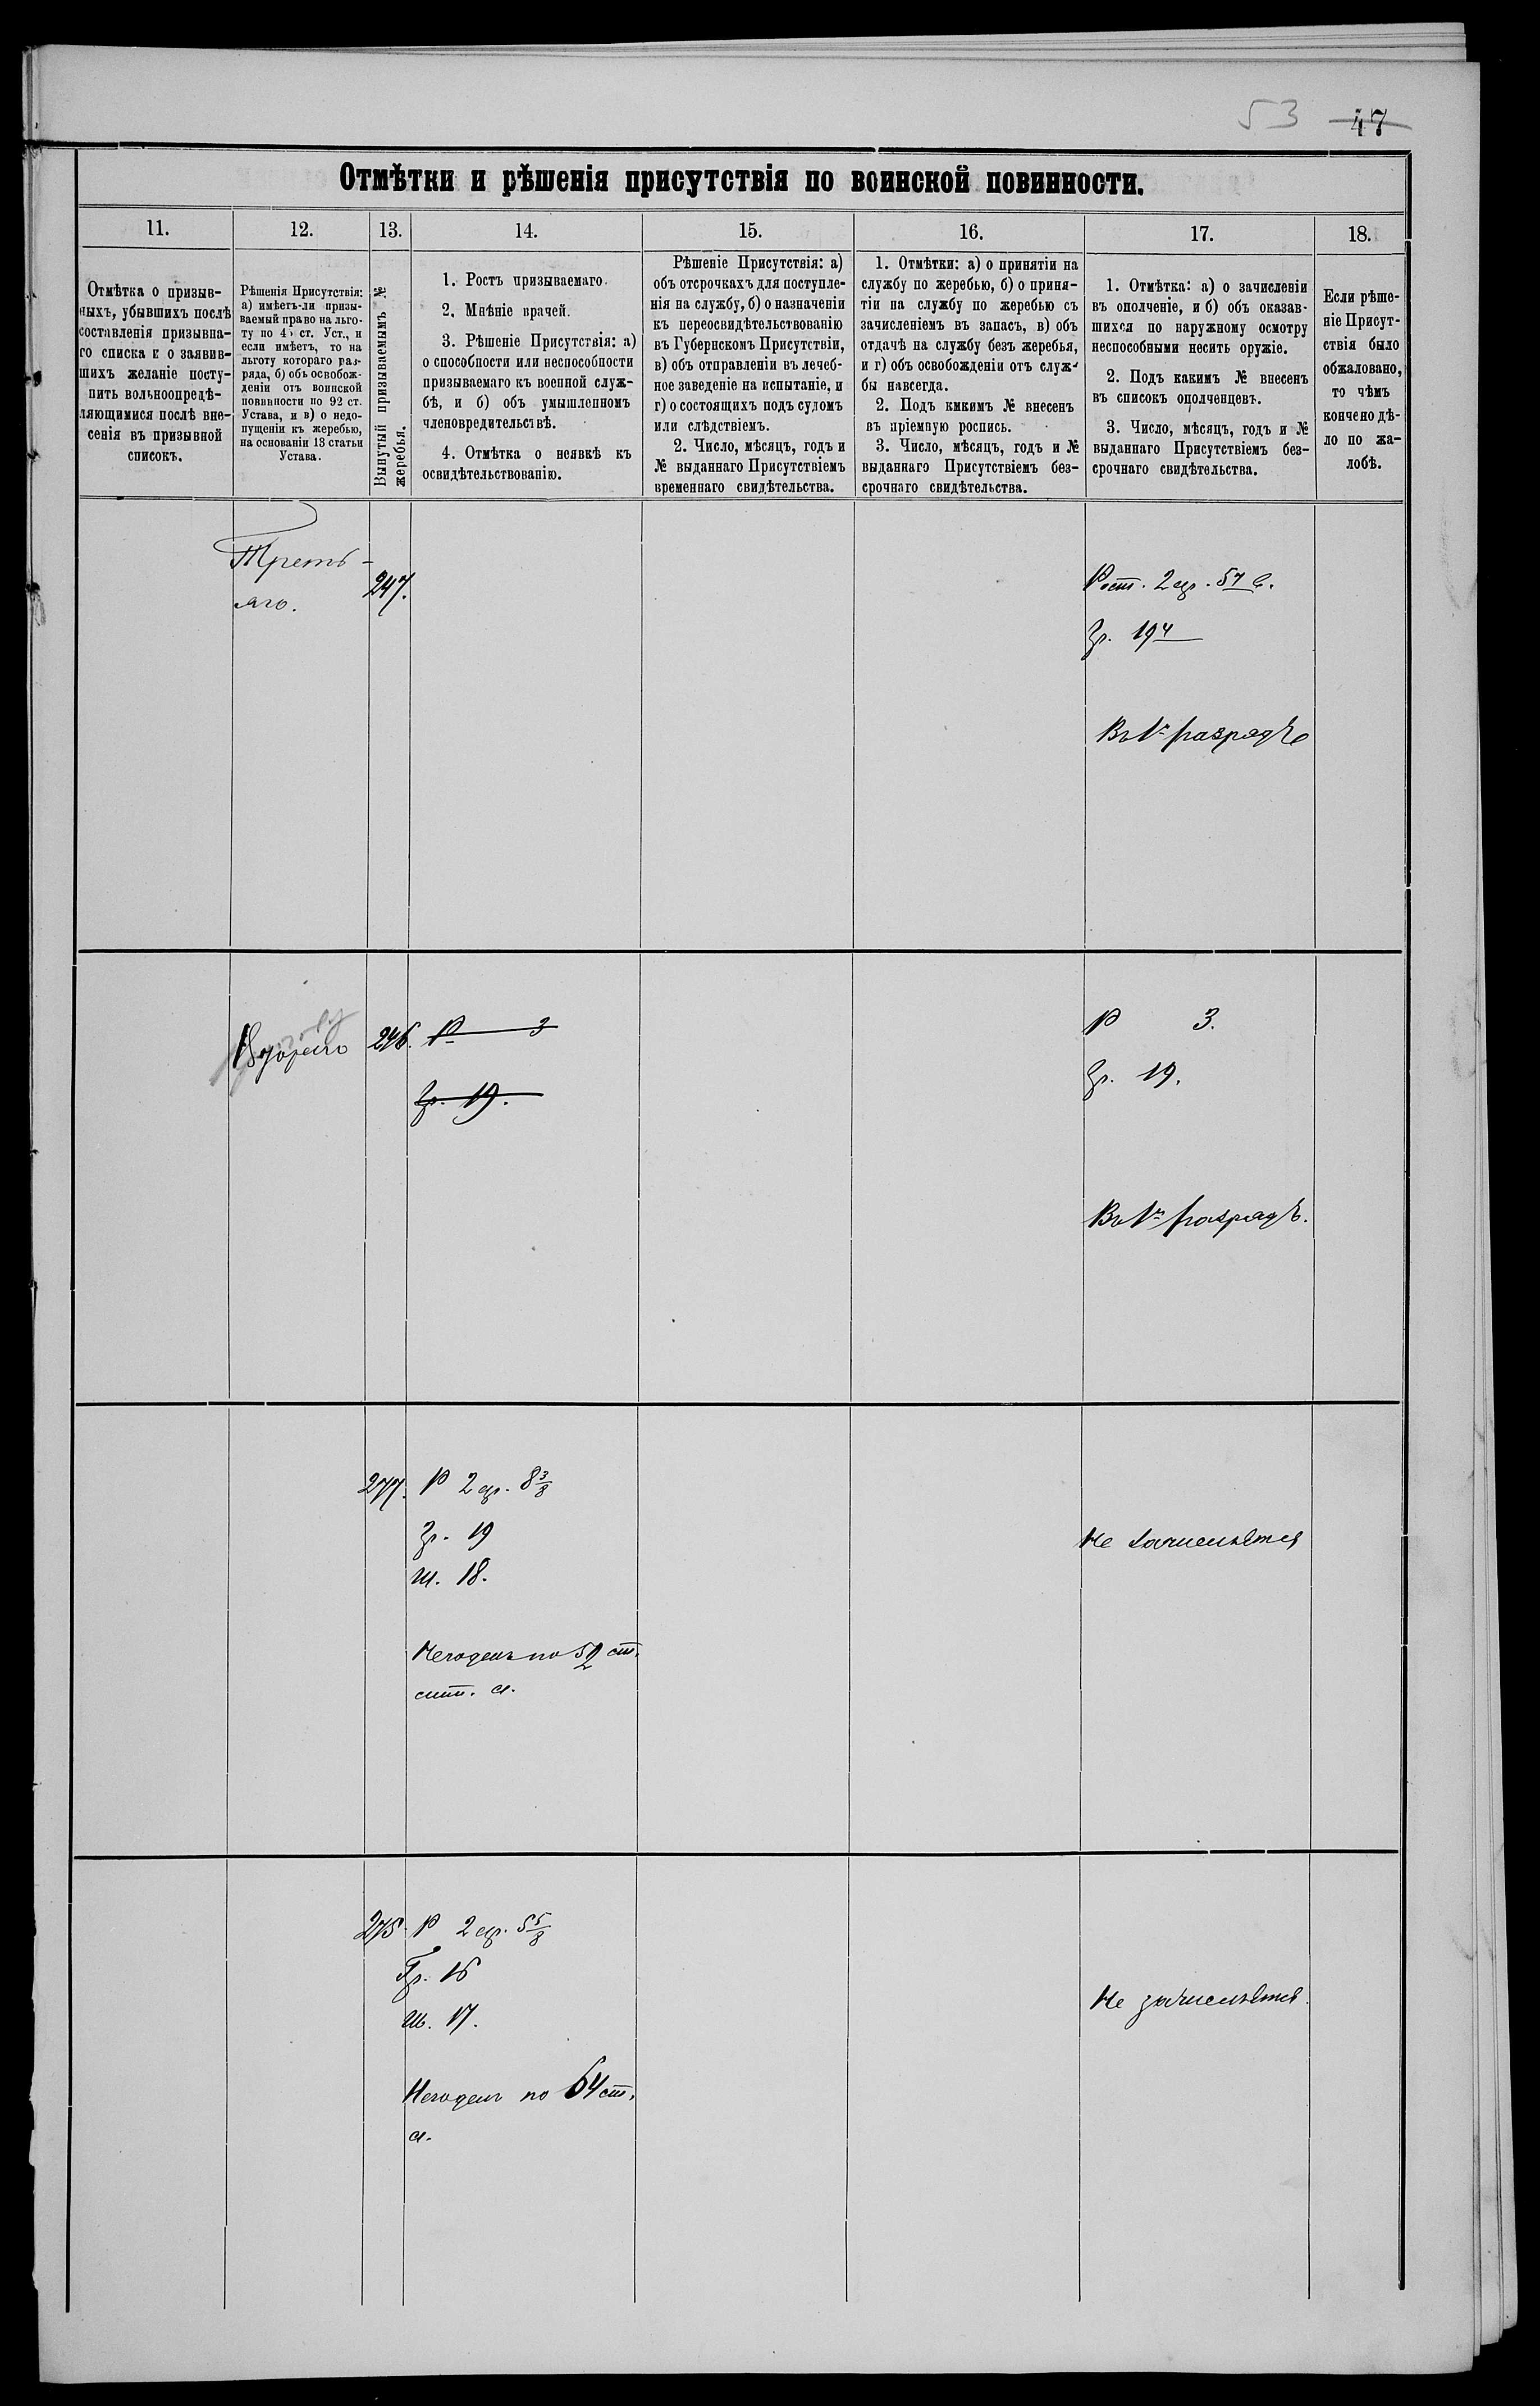 53 47
Отмѣтки и рѣшенія присутствія по воинской повинности.
11.
12.
13.
14.
15.
16.
17.
18.
Отмѣтка о призыв-
ныхъ, убывшихъ послѣ
составленія призывна-
го списка и о заявив-
шихъ желаніе посту-
пить вольноопредѣ-
ляющимися послѣ вне-
сенія въ призывной
списокъ.
Рѣшенія Присутствія:
а) имѣетъ-ли призы-
ваемый право на льго-
ту по 45 ст. Уст., и
если имѣетъ, то на
льготу котораго раз-
ряда, б) объ освобож-
деніи отъ воинской
повинности по 92 ст.
Устава, и в) о недо-
пущеніи къ жеребью,
на основаніи 13 статьи
Устава.
Вынутый призываемымъ №
жеребья.
1. Ростъ призываемаго.
2. Мнѣніе врачей.
3. Рѣшеніе Присутствія: а)
о способности или неспособности
призываемаго къ военной служ-
бѣ, и б) объ умышленномъ
членовредительствѣ.
4. Отмѣтка о неявкѣ къ
освидѣтельствованію.
Рѣшеніе Присутствія: а)
объ отсрочкахъ для поступле-
нія на службу, б) о назначеніи
къ переосвидѣтельствованію
въ Губернскомъ Присутствіи,
в) объ отправленіи въ лечеб-
ное заведеніе на испытаніе, и
г) о состоящихъ подъ судомъ
или слѣдствіемъ.
2. Число, мѣсяцъ, годъ и
№ выданнаго Присутствіемъ
временнаго свидѣтельства.
1. Отмѣтки: а) о принятіи на
службу по жеребью, б) о приня-
тіи на службу по жеребью съ
зачисленіемъ въ запасъ, в) объ
отдачѣ на службу безъ жеребья,
и г) объ освобожденіи отъ служ-
бы навсегда.
2. Подъ кмкимъ № внесенъ
въ пріемную роспись.
3. Число, мѣсяцъ, годъ и №
выданнаго Присутствіемъ без-
срочнаго свидѣтельства.
1. Отмѣтка: а) о зачисленіи
въ ополченіе, и б) объ оказав-
шихся по наружному осмотру
неспособными несить оружіе.
2. Подъ какимъ № внесенъ
въ списокъ ополченцевъ.
3. Число, мѣсяцъ, годъ и №
выданнаго Присутствіемъ без-
срочнаго свидѣтельства.
Если рѣше-
ніе Присут-
ствія было
обжаловано,
то чѣмъ
кончено дѣ-
ло по жа-
лобѣ.
Треть-
яго.
247.
Рост. 2 ар. 57 в.
Гр. 194
Въ 1й разрядъ
Втораго
246.
Р 3
Гр. 19.
Р 3.
Гр. 19.
Въ 1й разрядъ.
277.
Р 2 ар. 8 3/8
Гр. 19
Ш. 18.
Негоденъ по 52 ст.
лит. а.
Не зачисляется
275
Р 2 ар. 5 5/8
Гр. 16
Ш. 17.
Негоденъ по 64 ст.
а.
Не зачисляется.